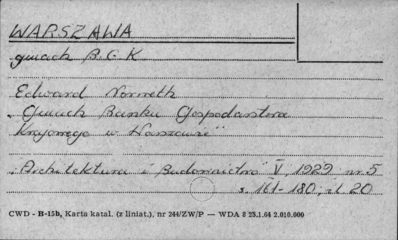 WARSZAWA
gmach B.G.K
Edward Norwerth
„Gmach Banku Gospodarstwa
Krajowego w Warszawie"
„Architektura i Budownictwo" V, 1929 nr 5
s. 161-180, il 20
CWD - B-15b, Karta katal. (z liniat.), nr 244/ZW/P — WDA 8 23.1.64 2.010.000